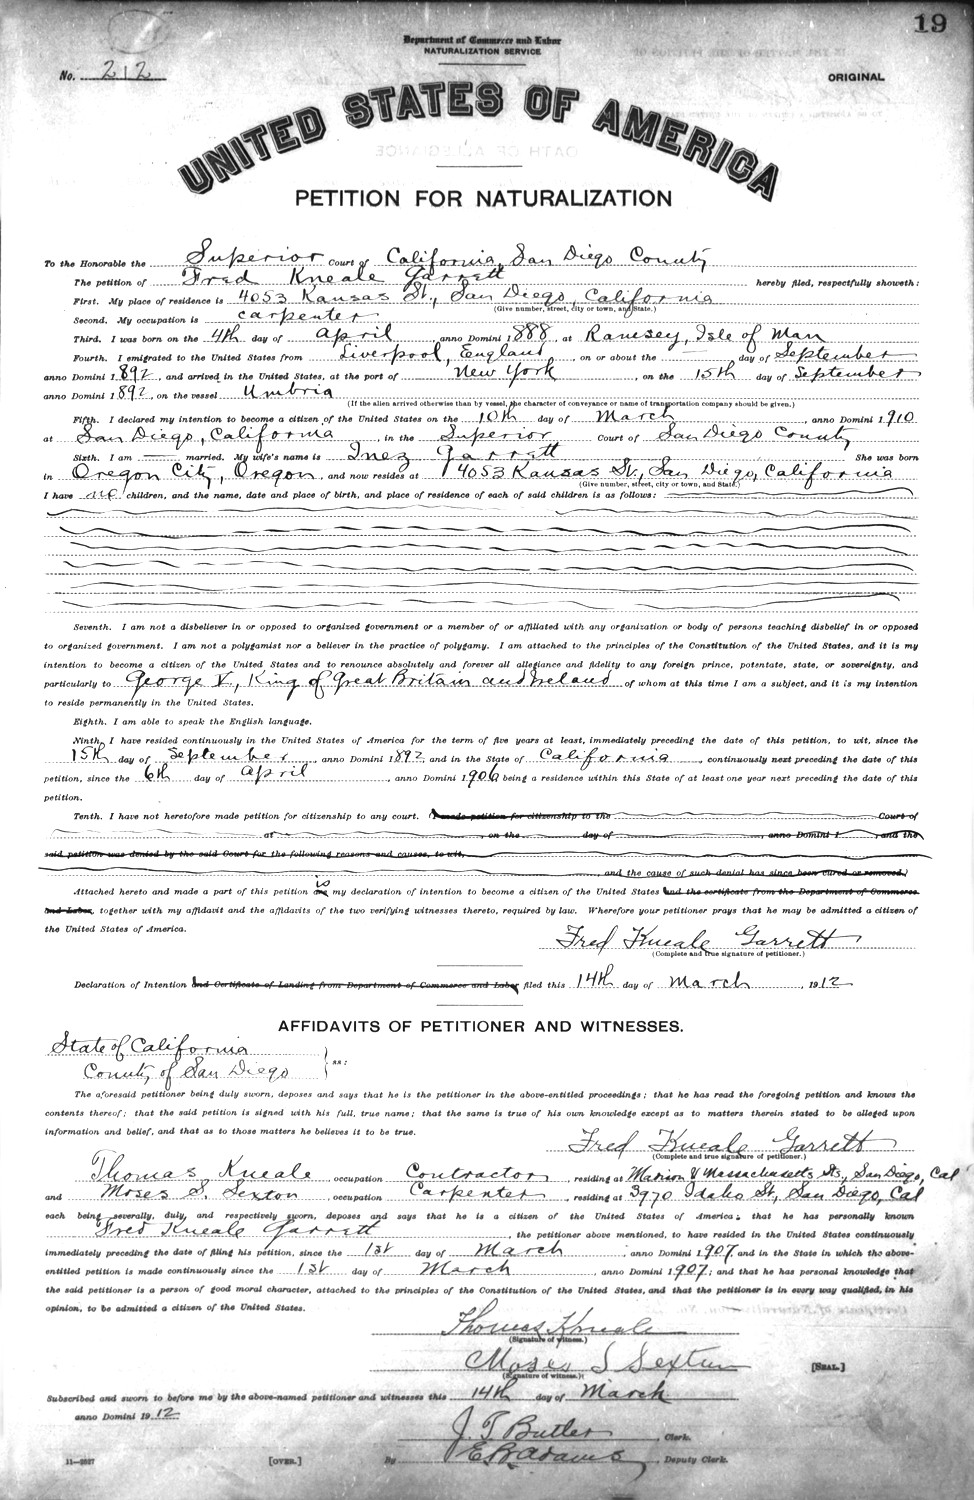 19
Department of Commerce and Labor
NATURALIZATION SERVICE
No. 212
ORIGINAL
UNITED STATES OF AMERICA
PETITION FOR NATURALIZATION
To the Honorable the Superior Court of California, San Diego County
The petition of Fred Kneale Garrett hereby filed, respectfully showeth:
First. My place of residence is 4053 Kansas St., San Diego, California
(Give number, street, city or town, and State.)
Second. My occupation is carpenter
Third. I was born on the 4th day of April, anno Domini 1888, at Ramsey, Isle of Man
Fourth. I emigrated to the United States from Liverpool, England, on or about the — day of September
anno Domini 1892, and arrived in the United States, at the port of New York, on the 15th day of September
anno Domini 1892, on the vessel Umbria
(If the alien arrived otherwise than by vessel, the character of conveyance or name of transportation company should be given.)
Fifth. I declared my intention to become a citizen of the United States on the 10th day of March, anno Domini 1910
at San Diego, California, in the Superior Court of San Diego County
Sixth. I am — married. My wife's name is Inez Garrett She was born
in Oregon City, Oregon, and now resides at 4053 Kansas St., San Diego, California
(Give number, street, city or town, and State.)
I have no children, and the name, date and place of birth, and place of residence of each of said children is as follows:
Seventh. I am not a disbeliever in or opposed to organized government or a member of or affiliated with any organization or body of persons teaching disbelief in or opposed
to organized government. I am not a polygamist nor a believer in the practice of polygamy. I am attached to the principles of the Constitution of the United States, and it is my
intention to become a citizen of the United States and to renounce absolutely and forever all allegiance and fidelity to any foreign prince, potentate, state, or sovereignty, and
particularly to George V., King of Great Britain and Ireland of whom at this time I am a subject, and it is my intention
to reside permanently in the United States.
Eighth. I am able to speak the English language.
Ninth. I have resided continuously in the United States of America for the term of five years at least, immediately preceding the date of this petition, to wit, since the
15th day of September, anno Domini 1892 and in the State of California, continuously next preceding the date of this
petition, since the 6th day of April, anno Domini 1906 being a residence within this State of at least one year next preceding the date of this
petition.
Tenth. I have not heretofore made petition for citizenship to any court. (I made petition for citizenship to the Court of
at, on the day of, anno Domini 1, and the
said petition was denied by the said Court for the following reasons and causes, to wit,
, and the cause of such denial has since been cured or removed.)
Attached hereto and made a part of this petition are is my declaration of intention to become a citizen of the United States and the certificate from the Department of Commerce
and Labor, together with my affidavit and the affidavits of the two verifying witnesses thereto, required by law. Wherefore your petitioner prays that he may be admitted a citizen of
the United States of America.
Fred Kneale Garrett
(Complete and true signature of petitioner.)
Declaration of Intention and Certificate of Landing from Department of Commerce and Labor filed this 14th day of March, 1912
AFFIDAVITS OF PETITIONER AND WITNESSES.
State of California
County of San Diego } ss:
The aforesaid petitioner being duly sworn, deposes and says that he is the petitioner in the above-entitled proceedings; that he has read the foregoing petition and knows the
contents thereof; that the said petition is signed with his full, true name; that the same is true of his own knowledge except as to matters therein stated to be alleged upon
information and belief, and that as to those matters he believes it to be true.
Fred Kneale Garrett
(Complete and true signature of petitioner.)
Thomas Kneale, occupation Contractor, residing at Marion & Massachusetts Sts, San Diego, Cal
and Moses S. Sexton, occupation Carpenter, residing at 3970 Idaho St, San Diego, Cal
each being severally, duly, and respectively sworn, deposes and says that he is a citizen of the United States of America; that he has personally known
Fred Kneale Garrett, the petitioner above mentioned, to have resided in the United States continuously
immediately preceding the date of filing his petition, since the 1st day of March, anno Domini 1907 and in the State in which the above-
entitled petition is made continuously since the 1st day of March, anno Domini 1907; and that he has personal knowledge that
the said petitioner is a person of good moral character, attached to the principles of the Constitution of the United States, and that the petitioner is in every way qualified, in his
opinion, to be admitted a citizen of the United States.
Thomas Kneale
(Signature of witness.)
Moses S Sexton
(Signature of witness.)
[SEAL.]
Subscribed and sworn to before me by the above-named petitioner and witnesses this 14th day of March
anno Domini 1912
J. T. Butler, Clerk.
11—2827
[OVER.]
By E B Adams, Deputy Clerk.